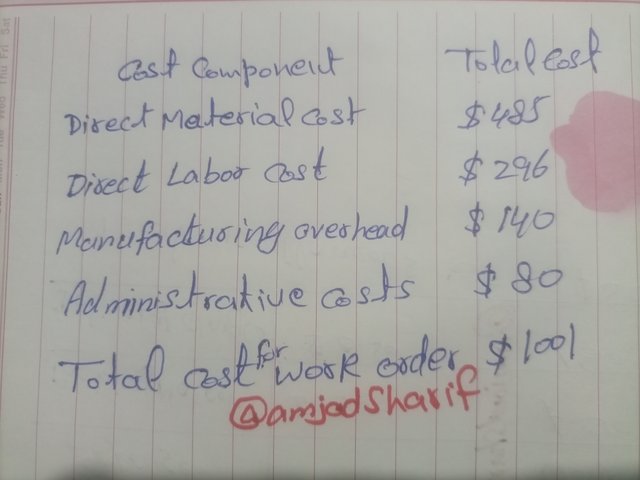 Cost Component Total Cost
Direct Material Cost $ 485
Direct Labor Cost $ 296
Manufacturing overhead $ 140
Administrative costs $ 80
Total cost for work order $ 1001
@amjadSharif
Thu Fri Sat